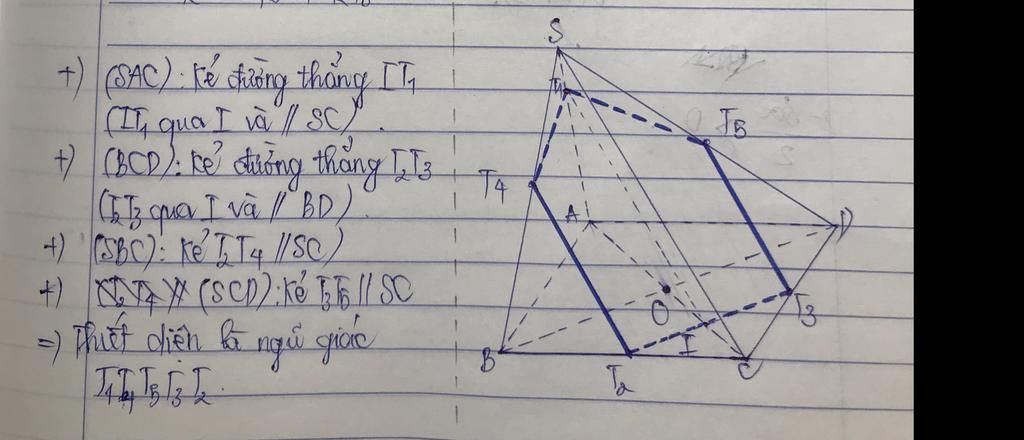 +) (SAC): Kẻ đường thẳng IT₁
(IT₁ qua I và // SC).
+) (BCD): Kẻ đường thẳng T₂T₃
(T₂T₃ qua I và // BD).
+) (SBC): Kẻ T₂T₄ // SC)
+) (SCD): Kẻ T₃T₅ // SC
=) Thiết diện là ngũ giác
T₁T₄T₅T₃T₂.
S
T₁
T₅
T₄
A
D
O
T₃
I
B
T₂
C